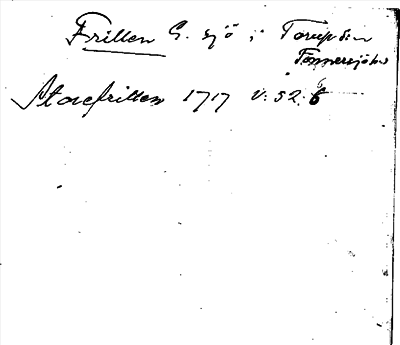 Frillen G. sjö i Torup sn
Tönnersjö hd
Storefrillen 1717 V: 52. 6